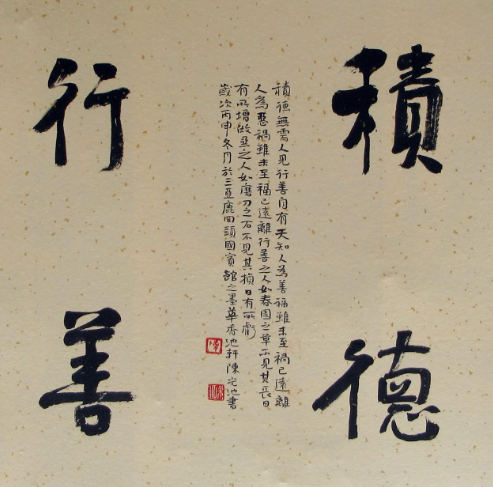 積德
行善
積德無需人見行善自有天知人為善福雖未至禍已遠離
人為惡禍雖未至福已遠離行善之人如春園之草不見其長日
有所增做惡之人如磨刀之石不見其損日有所虧
歲次丙申冬月於三亞鹿回頭國賓館之墨華香池軒陳
書